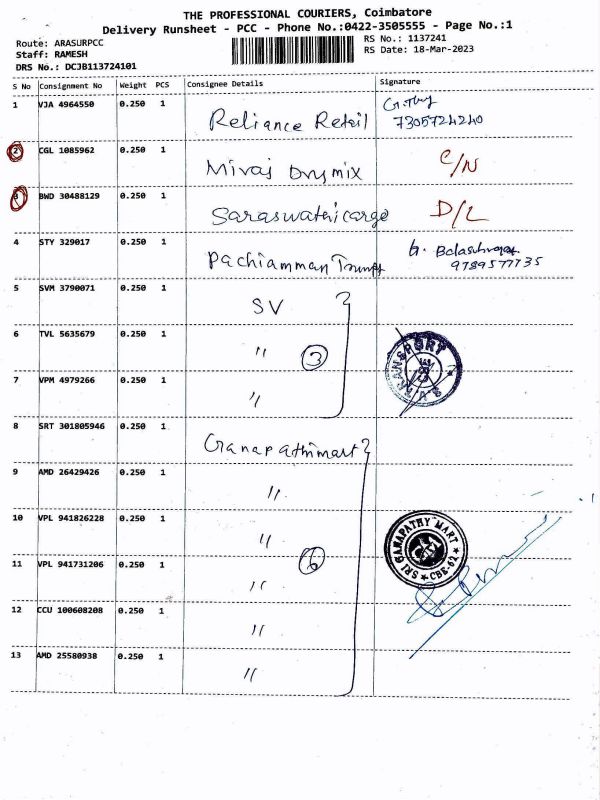 THE PROFESSIONAL COURIERS, Coimbatore
Delivery Runsheet - PCC - Phone No.:0422-3505555 - Page No.:1
Route: ARASURPCC
RS No.: 1137241
Staff: RAMESH
RS Date: 18-Mar-2023
DRS No.: DCJB113724101
S No Consignment No Weight PCS Consignee Details Signature
1 VJA 4964550 0.250 1 Reliance Retail
7305724240
2 CGL 1085962 0.250 1 Miraj Drymix C/N
3 BWD 30488129 0.250 1 Saraswathi cargo D/L
4 STY 329017 0.250 1 Pachiamman
9789577735
5 SVM 3790071 0.250 1 SV
6 TVL 5635679 0.250 1 " 3
TRANSPORT
7 VPM 4979266 0.250 1 "
8 SRT 301805946 0.250 1 Ganapathimart
9 AMD 26429426 0.250 1 "
10 VPL 941826228 0.250 1 "
SRI GANAPATHY MART
★ CBE-62 ★
11 VPL 941731206 0.250 1 " 6
12 CCU 100608208 0.250 1 "
13 AMD 25580938 0.250 1 "